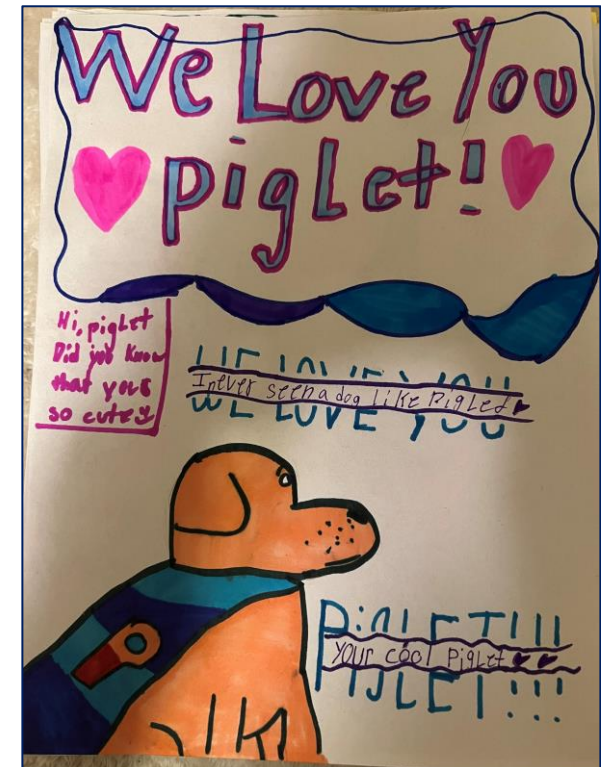 We Love You
pigLet!
Hi, pigLet
Did you know
that your
so cute
WE LOVE YOU
I never seen a dog like PigLet
PiGLET!!!
Your cool PigLet